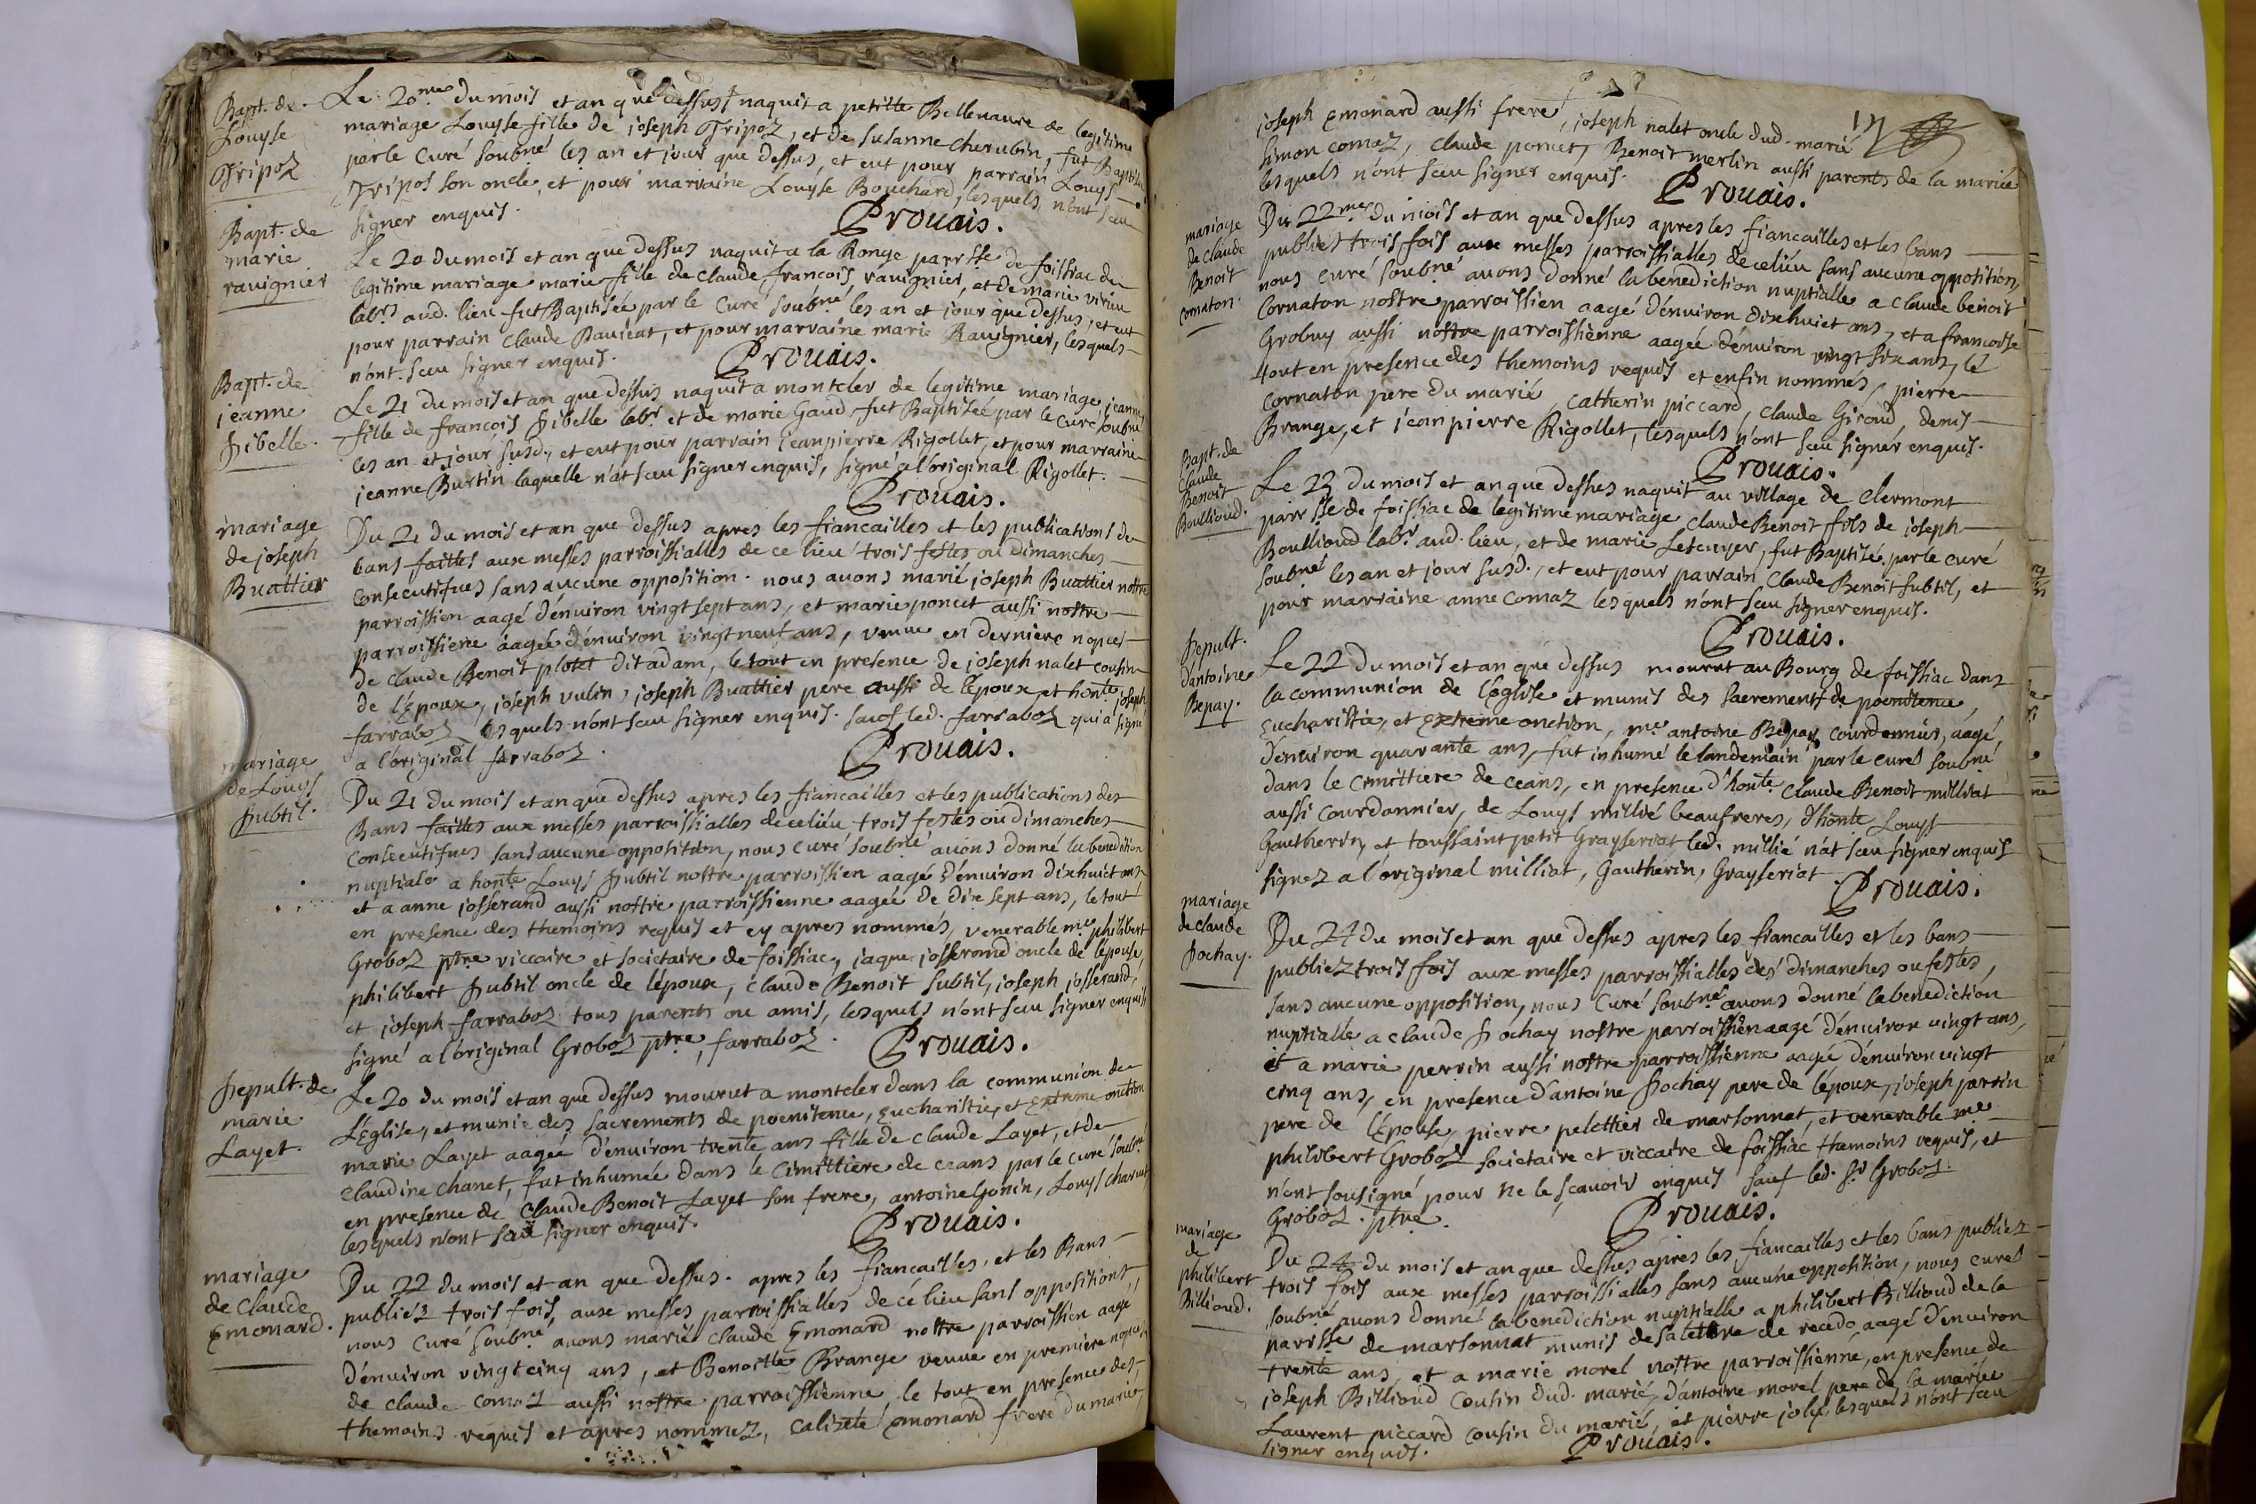 Bapt. de
Louyse
Tripoz
Le 20me du mois et an que dessus naquit a petitte Bellenavre de legitime
mariage Louyse fille de joseph Tripoz, et de susanne cherubin, fut Baptisée
par le Curé soubné les an et jour que dessus, et eut pour parrain Louys
Tripos son oncle, et pour marraine Louyse Bouchard, lesquels n'ont sceu
signer enquis.
Prouais.
Bapt. de
marie
rauignier
Le 20 du mois et an que dessus naquit a la Ronge parrsse de foissiac de
legitime mariage marie fille de claude francois rauignier, et de marie
labrs aud. lieu fut Baptisée par le Curé soubné les an et jour que dessus, et eut
pour parrain claude, et pour marraine marie Rauignier, lesquels
n'ont sceu signer enquis.
Prouais.
Bapt. de
jeanne
subelle.
Le 21 du mois et an que dessus naquit a montcler de legitime mariage jeanne
fille de francois sibelle labr. et de marie Gaud, fut Baptisée par le curé soubné
les an et jour susd., et eut pour parrain jeanpierre Rigollet, et pour marraine
jeanne Burtin laquelle n'at sceu signer enquis, signé a l'original Rigollet.
Prouais.
mariage
de joseph
Buattier
Du 21 du mois et an que dessus apres les fiancailles et les publications de
bans faittes aux messes parroissialles de ce lieu trois festes ou dimanches
consecutifues sans aucune opposition. nous auons marié joseph Buattier nottre
parroissien aagé d'enuiron vingt sept ans, et marie poncet aussi nostre
parroissiene aagée d'enuiron vingt neuf ans, veuue en derniere nopces
de claude Benoit plotet dit adam, le tout en presence de joseph nalet cousin
de l'époux, joseph vulin, joseph Buattier pere aussi de l'époux et honte joseph
farraboz lesquels n'ont sceu signer enquis. sauf led. farraboz qui a signé
a l'original farraboz.
Prouais.
mariage
de Louys
subtil.
Du 21 du mois et an que dessus apres les fiancailles et les publications des
Bans faittes aux messes parroissialles de ce lieu trois festes ou dimanches
consecutifues sans aucune opposition, nous curé soubné auons donné la benediction
nuptiale a honte Louys subtil nostre parroissien aagé d'enuiron dixhuict ans
et a anne josserand aussi nottre parroissienne aagée de dix sept ans, le tout
en presence des themoins requis et cy apres nommés, venerable mre philibert
Groboz ptre viccaire et societaire de foissiac, jaque josserand oncle de l'épouse,
philibert subtil oncle de l'époux, claude Benoit subtil, joseph josserand,
et joseph farraboz tous parents ou amis, lesquels n'ont sceu signer enquis
signé a l'original Groboz ptre, farraboz.
Prouais.
sepult. de
marie
Layet.
Le 20 du mois et an que dessus mourut a montcler dans la communion de
l'Eglise, et munie des sacrements de poenitence, eucharistie, et extreme onction
marie Layet aagée d'enuiron trente ans fille de claude Layet, et de
claudine chanet, fut inhumée dans le cimittiere de ceans par le curé soubné
en presence de claude Benoit Layet son frere, antoine Gonin, Louys
lesquels n'ont sceu signer enquis.
Prouais.
mariage
de claude
Emonard.
Du 22 du mois et an que dessus. apres les fiancailles, et les Bans
publiéz trois fois, aux messes parroissialles de cé lieu sans oppositions,
nous curé soubné auons marié claude Emonard nottre parroissien aagé
d'enuiron vingt cinq ans, et Benoitte Brange veuue en premiere nopces
de claude comaz aussi nottre parroissienne le tout en presence des
themoins requis et apres nommez, emonard frere du marié,
joseph Emonard aussi frere, joseph nalet oncle dud. marié
simon comaz, claude poncet, Benoit merlin aussi parents de la mariée
lesquels n'ont sceu signer enquis.
Prouais.
mariage
de claude
Benoit
cornaton.
Du 22me du mois et an que dessus apres les fiancailles et les bans
publiés trois fois aux messes parroissialles de ce lieu sans aucune opposition,
nous curé soubné auons donné la benediction nuptialle a claude benoit
Cornaton nostre parroissien aagé d'enuiron dixhuict ans, et a francoise
Grobuy aussi nottre parroissienne aagée d'enuiron vingt six ans, lé
tout en presence des themoins requis et enfin nommés, pierre
cornaton pere du marié, catherin piccard, claude Giroud, denis
Brange, et jeanpierre Rigollet, lesquels n'ont sceu signer enquis.
Prouais.
Bapt. de
claude
Benoit
Boullioud.
Le 23 du mois et an que dessus naquit au village de clermont
parrsse de foissiac de legitime mariage claude Benoit fils de joseph
Boullioud labr. aud. lieu, et de marie Lescuyer, fut Baptisée par le curé
soubné les an et jour susd., et eut pour parrain claude Benoit subtil, et
pour marraine anne comaz lesquels n'ont sceu signer enquis.
Prouais.
sepult.
d'antoine
Bepay.
Le 22 du mois et an que dessus mourut au Bourg de foissiac dans
la communion de l'Eglise et munis des sacrements de poenitence,
eucharistie, et extreme onction, me antoine Bepay courdonnier, aagé
d'enuiron quarante ans, fut inhumé le landemain par le curé soubné
dans le cimittiere de ceans, en presence d'honte claude Benoit milliat
aussi courdonnier, de Louys millié beaufreres, d'honte Louys
Gautherin, et toussaint petit Grayseriat led. millié n'at sceu signer enquis
signez a l'original milliat, Gautherin, Grayseriat.
Prouais.
mariage
de claude
sochay.
Du 24 du mois et an que dessus apres les fiancailles et les bans
publiez trois fois aux messes parroissialles des dimanches ou festes,
sans aucune opposition, nous curé soubné auons donné la benediction
nuptialle a claude sochay nostre parroissien aagé d'enuiron vingt ans,
et a marie perrin aussi nostre parroissienne aagée d'enuiron vingt
cinq ans, en presence d'antoine sochay pere de l'époux, joseph perrin
pere de l'épouse, pierre pelettier de marsonnat, et venerable me
philibert Groboz societaire et viccaire de foissiac themoins requis, et
n'ont sousigné pour ne le scauoir enquis sauf led. sr Groboz.
Groboz. ptre.
Prouais.
mariage
de
philibert
Billioud.
Du 24 du mois et an que dessus apres les fiancailles et les bans publiez
trois fois aux messes parroissialles sans aucune opposition, nous curé
soubné auons donné la benediction nuptialle a philibert Billioud de la
parrsse de marsonnat munis de sa lettre de recedo aagé d'enuiron
trente ans, et a marie morel nostre parroissienne, en presence de
joseph Billioud cousin dud. marié, d'antoine morel pere de la mariée
Laurent piccard cousin du marié, et pierre joly lesquels n'ont sceu
signer enquis.
Prouais.